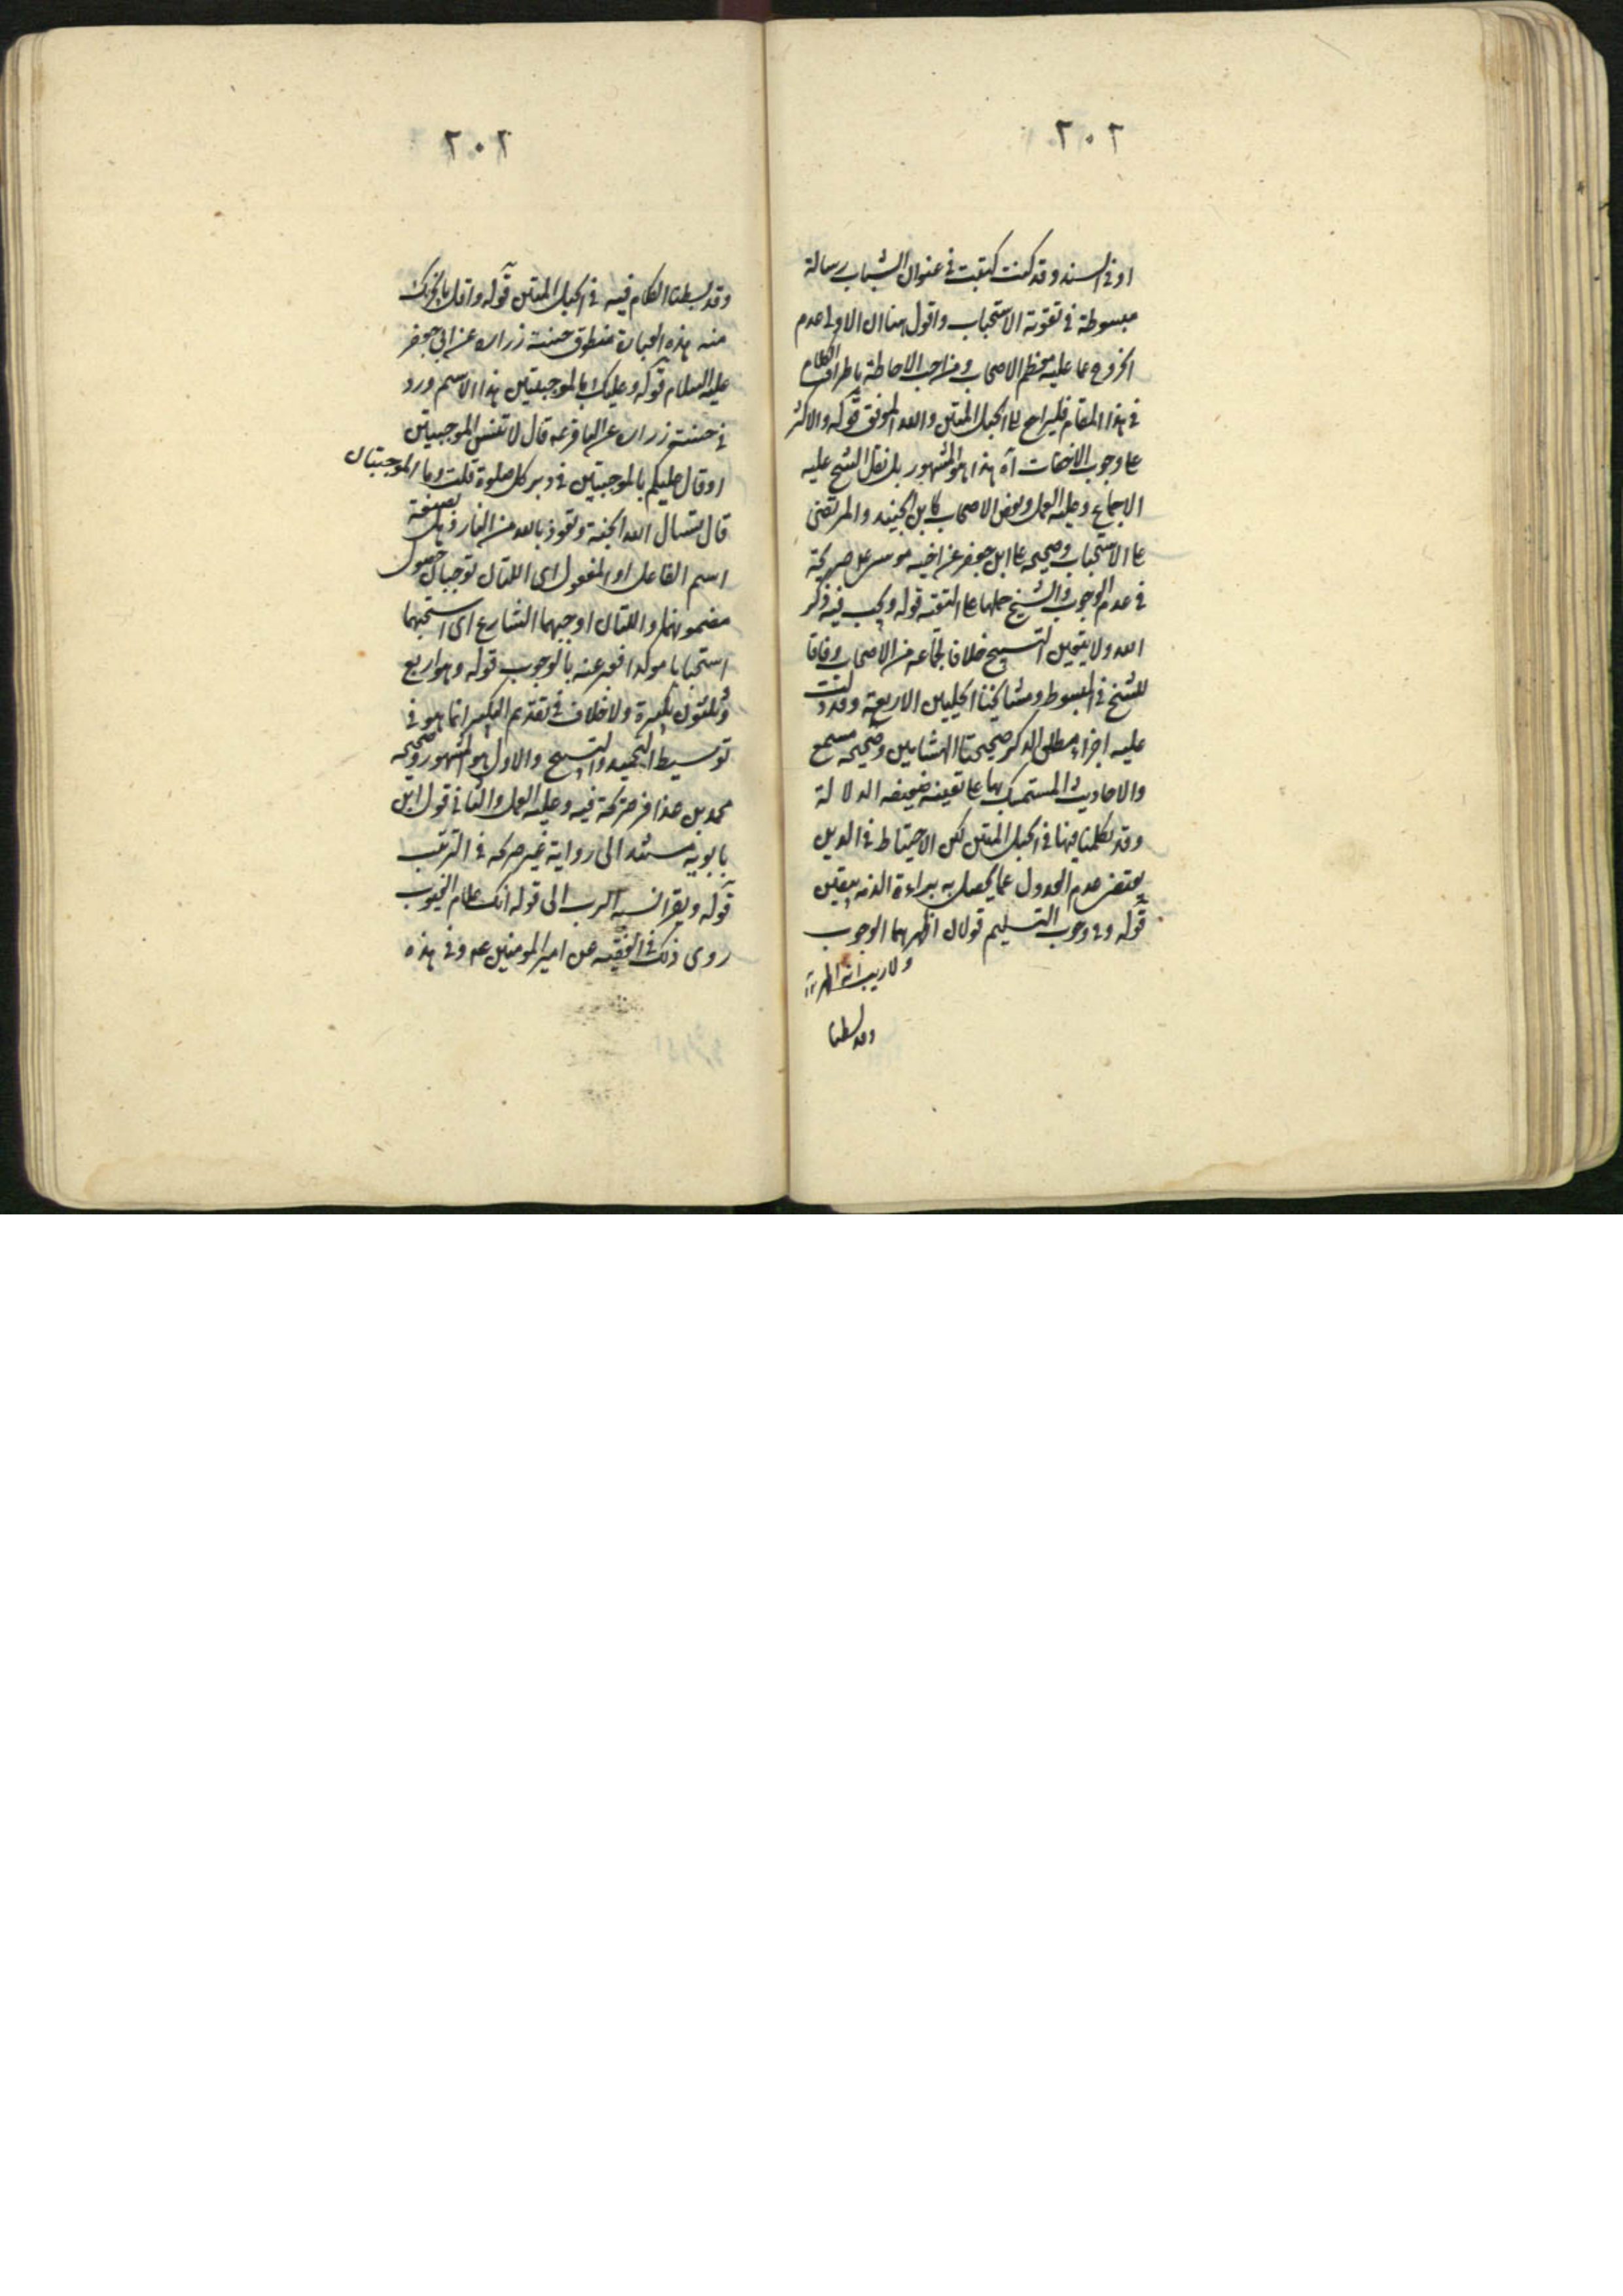 ٢٠٢
او فى السند و قد كنت كتبت فى عنوان الشباب رسالة
مبسوطة فى تقوية الاستحباب واقول هنا ان الاولى عدم
الخروج عما عليه معظم الاصحاب ومن احب الاحاطة باطراف الكلام
فى هذا المقام فليراجع الى الحبل المتين والله الموفق قوله والاكثر
على وجوب الاخفات آه هذا هو المشهور بل نقل الشيخ عليه
الاجماع وعليه العمل وبعض الاصحاب كابن الجنيد والمرتضى
على الاستحباب وصحيحه على ابن جعفر عن اخيه موسى صريحة
فى عدم الوجوب والشيخ حملها على التقيه قوله ويجب فيه ذكر
الله ولا يتعين التسبيح خلافا لجماعه من الاصحاب وفاقا
للشيخ فى المبسوط ومشايخنا الحليين الاربعة وقد دلت
عليه اجزاء مطلق الذكر صحيحتا الهشامين وصحيحه مسمع
والاحاديث المستمسك بها على تعينه ضعيفه الدلالة
وقد تكلمنا فيها فى الحبل المتين لكن الاحتياط فى الدين
يقتضى عدم العدول عما يحصل به براءة الذمه بيقين
قوله وفى وجوب التسليم قولان اظهرهما الوجوب
ولا ريب انه
وقد بسطنا
٢٠٢
وقد بسطنا الكلام فيه فى الحبل المتين قوله واقل ما يجزيك
منه هذه العبارة منطوق حسنة زراره عن ابى جعفر
عليه السلام قوله وعليك بالموجبتين هذا الاسم ورد
فى حسنة زراره عن الباقر عه قال لا تنس الموجبتين
او قال عليكم بالموجبتين فى دبر كل صلوة قلت وما الموجبتان
قال تسال الله الجنة وتعوذ بالله من النار وهى بصيغة
اسم الفاعل او المفعول اى اللتان توجبان حصول
مضمونهما او اللتان اوجبهما الشارع اى استحبهما
استحبابا موكدا فعبر عنه بالوجوب قوله وهو اربع
وثلثون تكبيرة ولا خلاف فى تقديم التكبير انما هو فى
توسيط التحميد والتسبيح والاول هو المشهور وصحيحه
محمد بن عذافر صريحة فيه وعليه العمل والثانى قول ابن
بابويه مستند الى رواية غير صريحه فى الترتيب
قوله ويقرا نسبه الرب الى قوله انك علام الغيوب
روى ذلك فى الفقيه عن امير المومنين عه وفى هذه